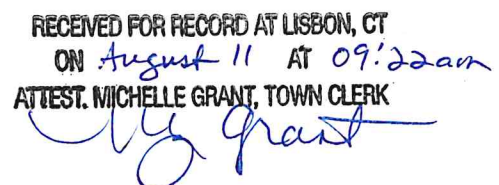 RECEIVED FOR RECORD AT LISBON, CT
ON August 11 AT 09:22am
ATTEST. MICHELLE GRANT, TOWN CLERK
M Grant